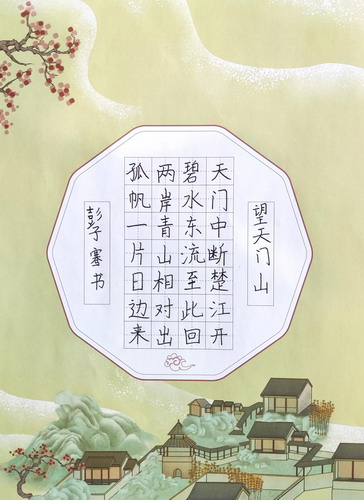 望天门山
天门中断楚江开
碧水东流至此回
两岸青山相对出
孤帆一片日边来
彭子骞书